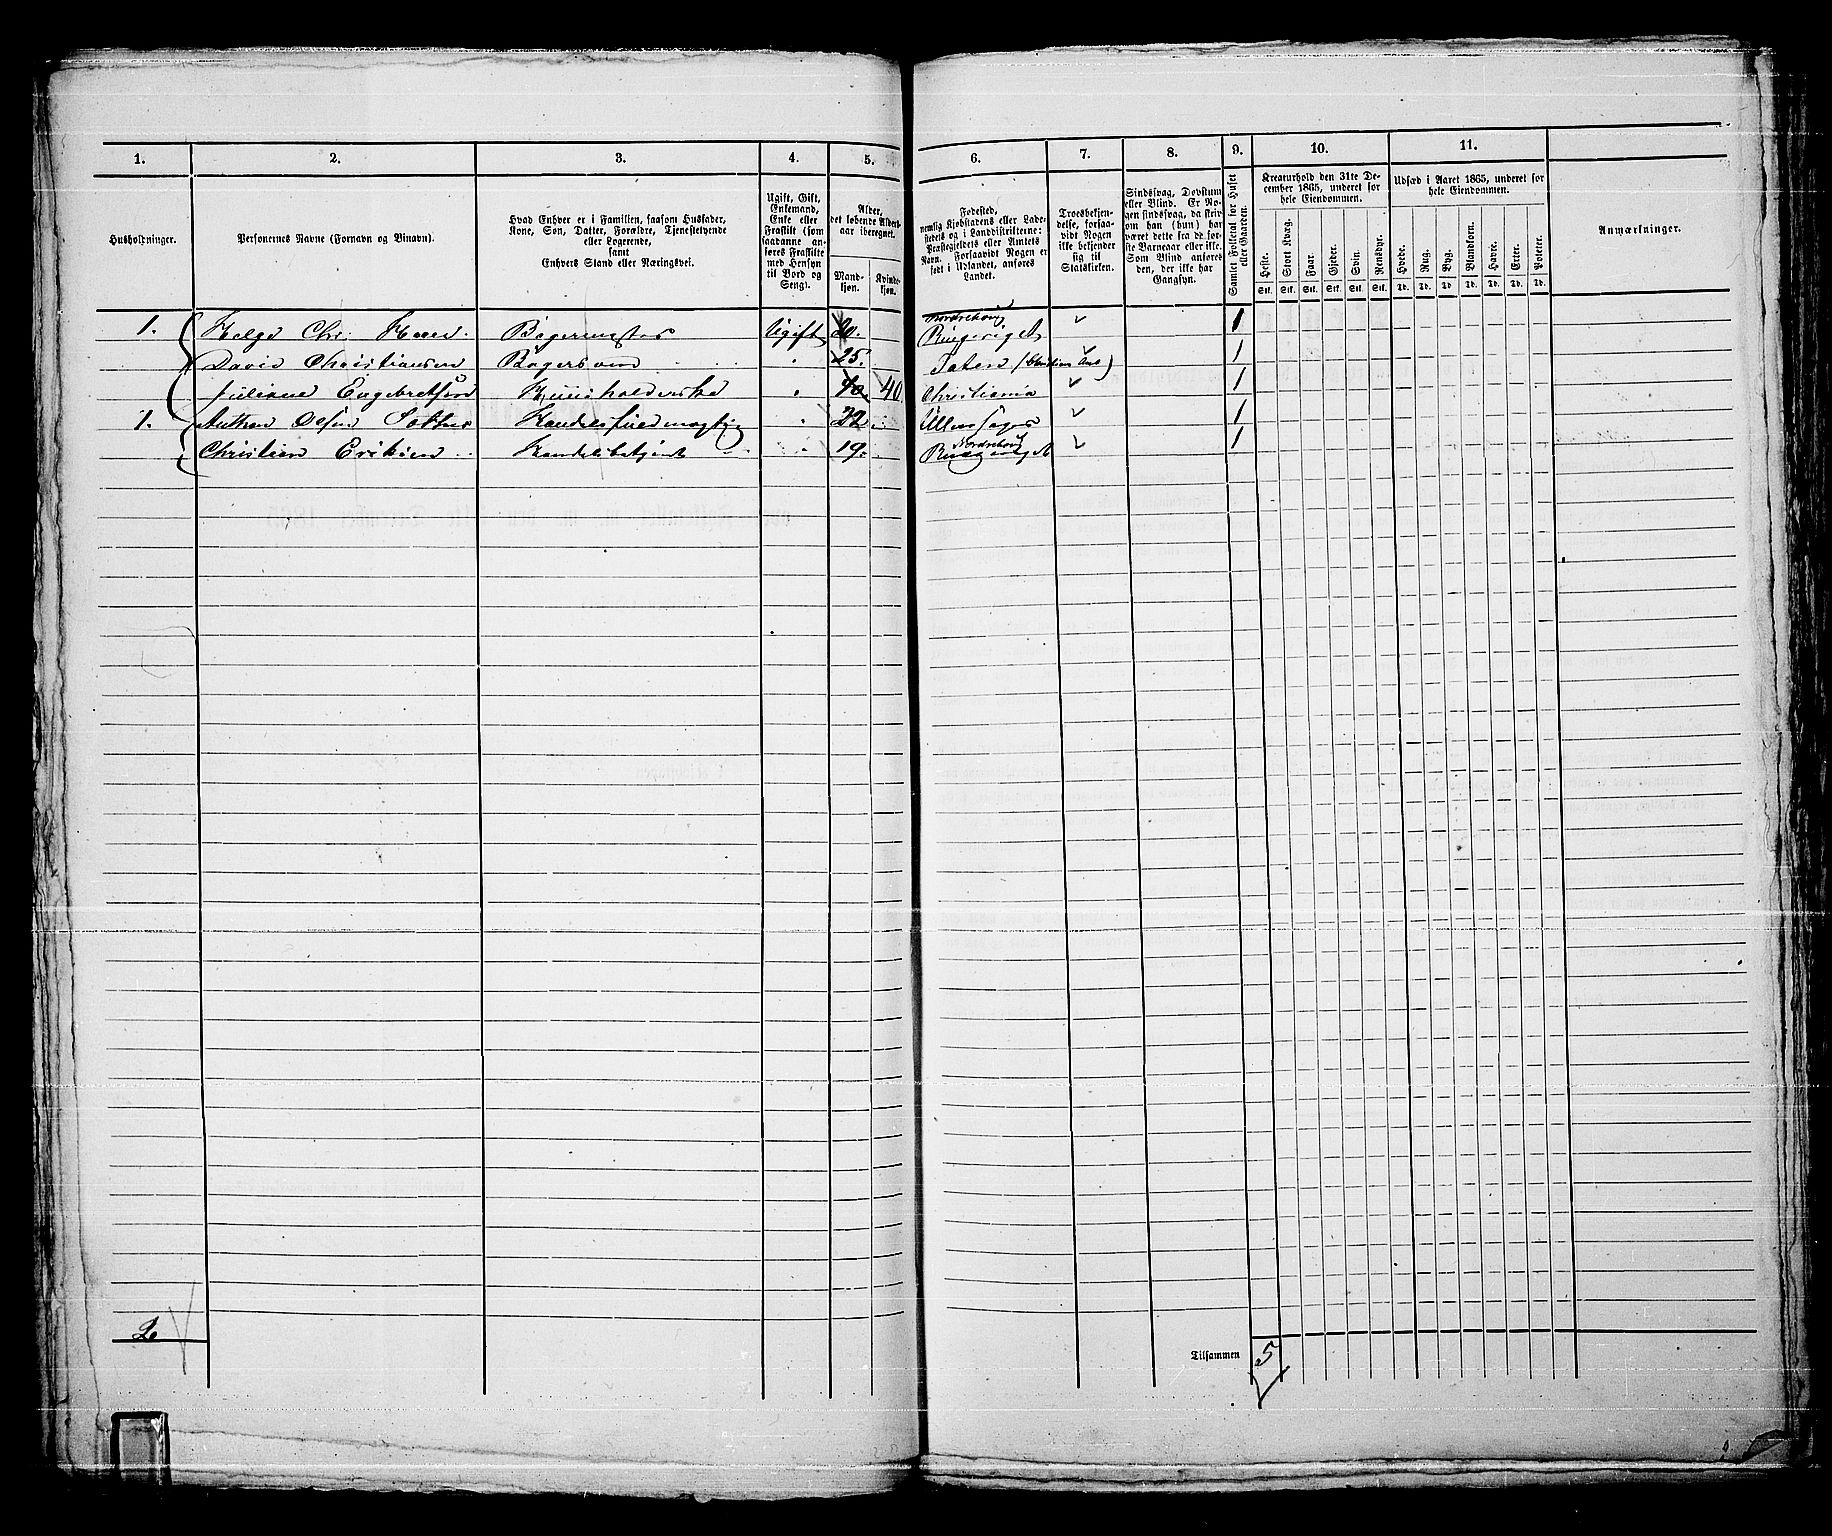 1. 2. 3. 4. 5. 6. 7. 8. 9. 10. 11.
Husholdninger.
Personernes Navne (Fornavn og Binavn).
Hvad Enhver er i Familien, saasom Husfader,
Kone, Søn, Datter, Forældre, Tjenestetyende
eller Logerende,
samt
Enhvers Stand eller Næringsvei.
Ugift, Gift,
Enkemand,
Enke eller
Fraskilt (som
saadanne an-
føres Fraskilte
med Hensyn
til Bord og
Seng).
Alder,
det løbende Alders-
aar iberegnet.
Mand-
kjøn.
Kvinde-
kjøn.
Fødested,
nemlig Kjøbstadens eller Lade-
stedets og i Landdistrikterne:
Præstegjeldets eller Amtets
Navn. Forsaavidt Nogen er
født i Udlandet, anføres
Landet.
Troesbekjen-
delse, forsaa-
vidt Nogen
ikke bekjender
sig til
Statskirken.
Sindssvag, Døvstum
eller Blind. Er No-
gen sindssvag, da skriv
om han (hun) har
været dette fra de før-
ste Barneaar eller ikke.
Som Blind anføres
den, der ikke har
Gangsyn.
Samlet Folketal for Huset
eller Gaarden.
Kreaturhold den 31te De-
cember 1865, underet for
hele Eiendommen.
Heste. Stort Kvæg. Faar. Gjeder. Svin. Rensdyr.
Stk. Stk. Stk. Stk. Stk. Stk.
Udsæd i Aaret 1865, underet for
hele Eiendommen.
Hvede. Rug. Byg. Blandkorn. Havre. Erter. Poteter.
Td. Td. Td. Td. Td. Td. Td.
Anmærkninger.
1. Helge Chr. Bagermester Ugift 20. Nordrehoug Ringeriget 1
David Christiansen Bagersvend " 25. Toten (Christians Amt) 1
Juliane Engebretsen Huusholderske " 40 40 Christiania 1
1. Anthon Olsen Handelsfuldmægtig " 22. Ullensager 1
Christian Eriksen Handelsbetjent " 19. Nordrehoug Ringeriget 1
2
Tilsammen 5